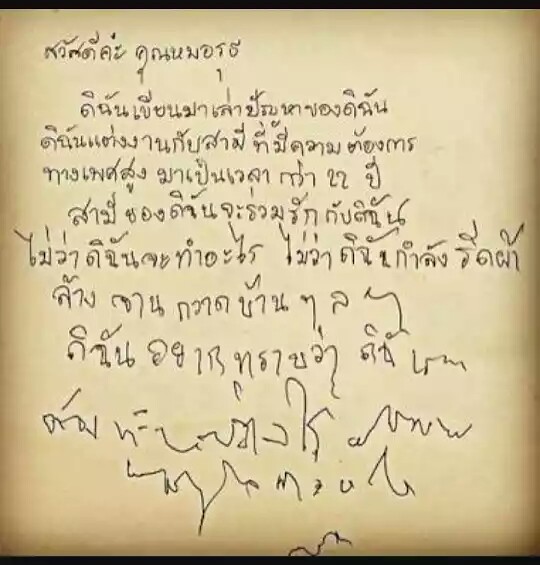 สวัสดีค่ะ คุณหมอ
ดิฉันเขียนมาเล่าปัญหาของดิฉัน
ดิฉันแต่งงานกับสามี ที่มีความต้องการ
ทางเพศสูง มาเป็นเวลา กว่า 22 ปี
สามีของดิฉันจะร่วมรักกับดิฉัน
ไม่ว่าดิฉันจะทำอะไร ไม่ว่าดิฉันกำลังรีดผ้า
ล้างจาน กวาดบ้าน ฯลฯ
ดิฉันอยากทราบว่า ดิฉัน